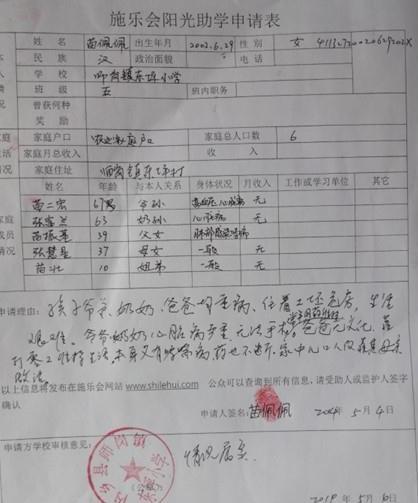 施乐会阳光助学申请表
姓名 苗佩佩 出生年月 2002.6.29 性别 女
民族 汉 政治面貌 电话
学校 师岗镇东坪小学
班级 五 班内职务
曾获何种
奖励
家庭户口 农业户口 家庭总人口数 6
家庭月总收入 收入
家庭住址 师岗镇东坪村
姓名 年龄 与本人关系 身体状况 月收入 工作或学习单位 其它
苗二宏 67 爷孙 高血压心脏病 无
63 奶孙 心脏病 无
苗振 39 父女 无
37 母女 一般 无
苗壮 10 姐弟 一般 无
申请理由：孩子爷爷、奶奶、爸爸均重病、住着D级危房，生活
艰难。爷爷奶奶心脏病严重，无法手术，爸爸无文化，靠
打零工维持生活，本身又有哮喘病，药也不断，家中几口人
以上信息将发布在施乐会网站 www.shilehui.com 公众可以查询到所有信息，请受助人或监护人签字
确认
申请人签名：苗佩佩 5月4日
申请方学校审核意见： 情况属实.